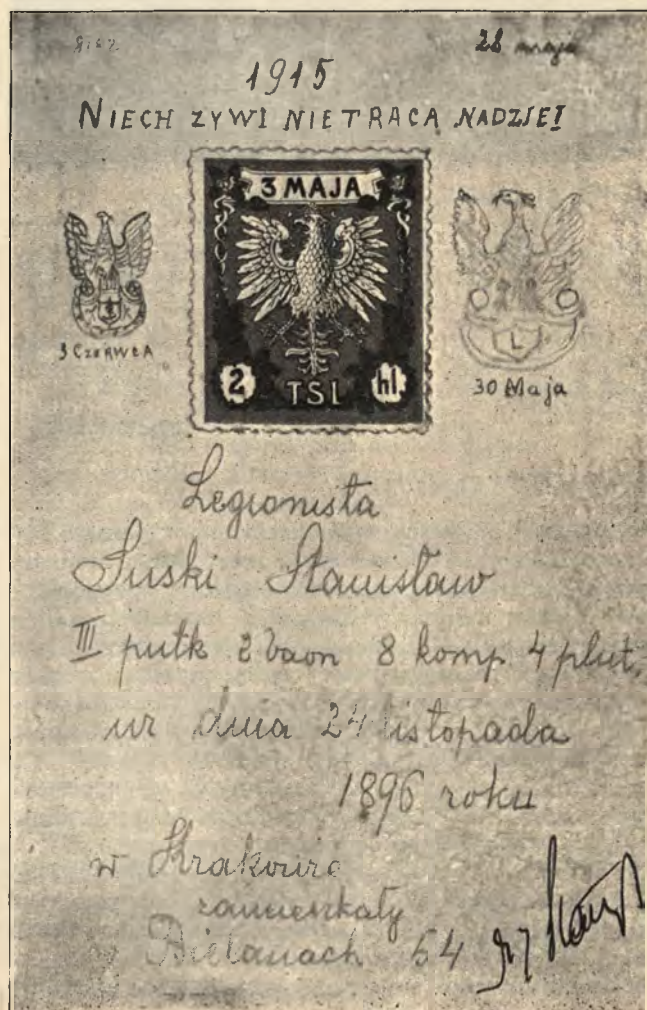 28 maja
1915
NIECH ZYWI NIE TRACĄ NADZIEI
3 MAJA
3 CZERWCA
2 TSL hl
L
30 Maja
Legionista
Suski Stanisław
III pułk 2 baon 8 komp. 4 plut.
ur dnia 24 listopada
1896 roku
w Krakowie
zamieszkały
w Bielanach 54